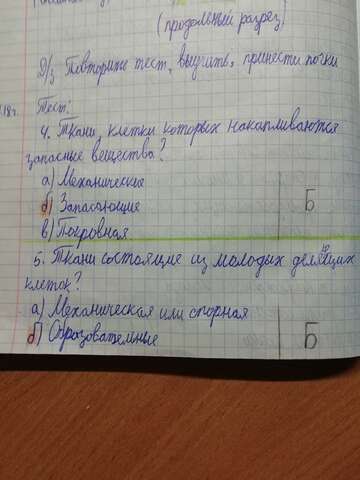 (продольный разрез)
Д/з Повторить тест, выучить, принести почки
18г.
Тест:
4. Ткани, клетки которых накапливаются
запасные вещества?
а) Механические
б) Запасающие
Б
в) Покровная
5. Ткани состоящие из молодых делящих
ся
клеток?
а) Механическая или опорная
б) Образовательные
Б